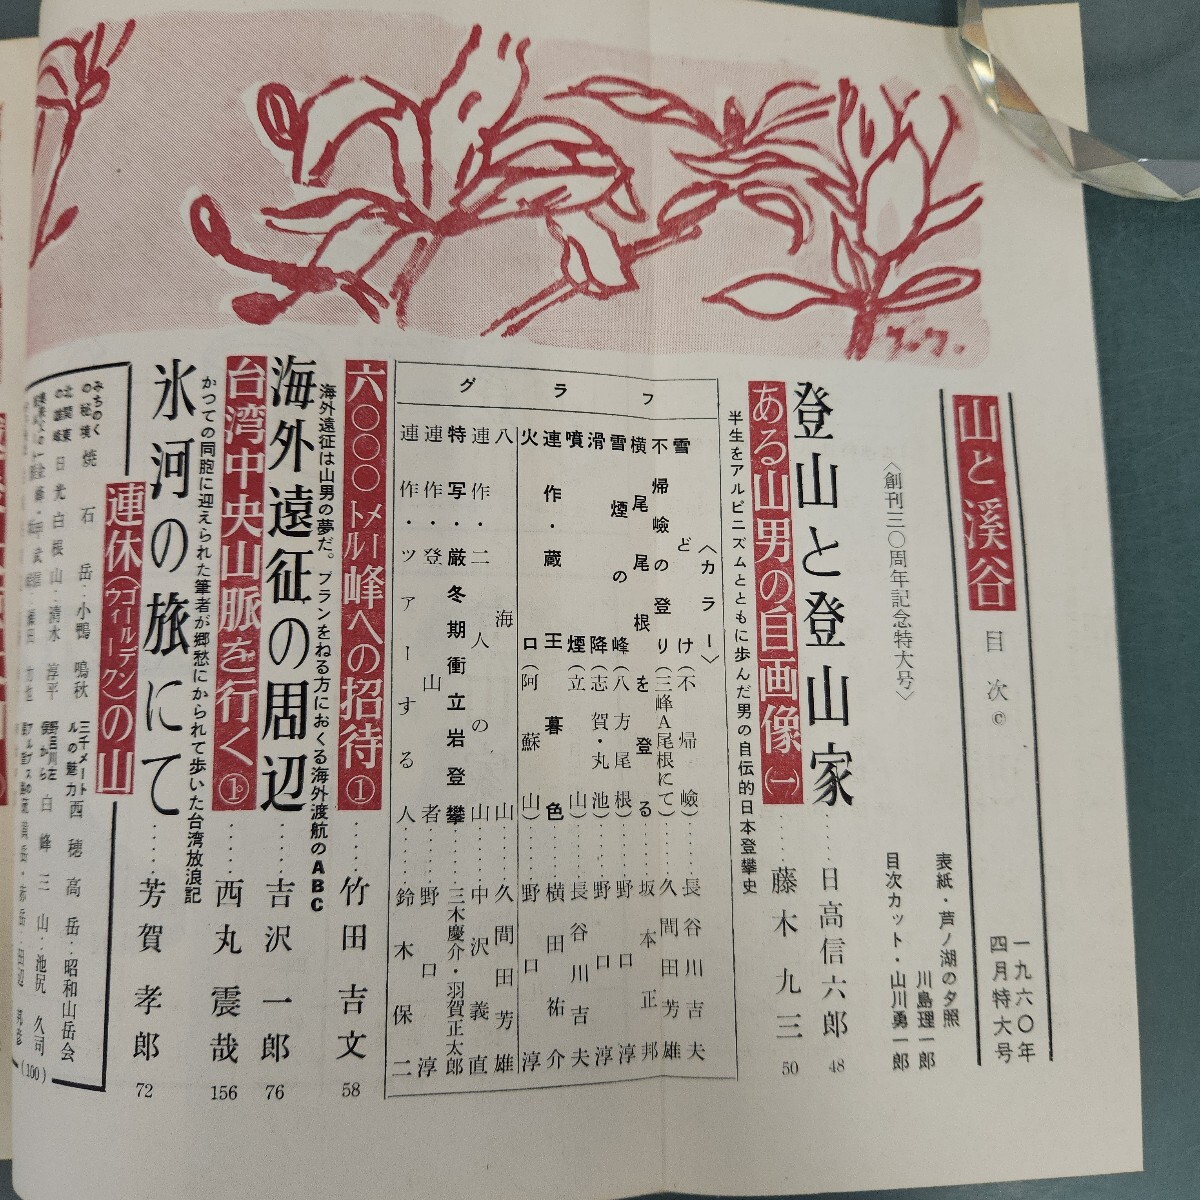 山と溪谷
目次©
一九六〇年
四月特大号
表紙・芦ノ湖の夕照
川島理一郎
目次カット・山川勇一郎
〈創刊三〇周年記念特大号〉
登山と登山家……日高信六郎 48
ある山男の自画像(一)……藤木九三 50
半生をアルピニズムとともに歩んだ男の自伝的日本登攀史
グラフ
〈カラー〉
雪どけ(不帰嶮)……長谷川吉夫
不帰嶮の登り(三峰A尾根にて)……久間田芳雄
横尾尾根を登る……坂本正邦
雪煙の峰(八方尾根)……野口淳
滑降(志賀・丸池)……野口淳
噴煙(立山)……長谷川吉夫
連作・蔵王暮色……横田祐介
火口(阿蘇山)……野口淳
八海山……久間田芳雄
連作・二人の山……中沢義直
特写・厳冬期衝立岩登攀……三木慶介・羽賀正太郎
連作・登山者……野口淳
連作・ツアーする人……鈴木保二
六〇〇〇メートル峰への招待①……竹田吉文 58
海外遠征は山男の夢だ。プランをねる方におくる海外渡航のABC
海外遠征の周辺……吉沢一郎 76
台湾中央山脈を行く①……西丸震哉 156
かつての同胞に迎えられた筆者が郷愁にかられて歩いた台湾放浪記
氷河の旅にて……芳賀孝郎 72
連休(ゴールデンウィーク)の山
みちのくの秘境 焼石岳・小鴨鳴秋
北関東の雄峰 日光白根山・清水淳平
三千メートルの魅力 西穂高岳・昭和山岳会
野呂川左俣から 白峰三山・池尻久司
(100)